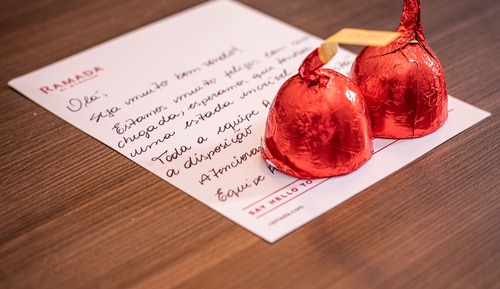 RAMADA
BY WYNDHAM
Olá,
Seja muito bem vindo!
Estamos muito felizes com
chegada, esperamos que
uma estada incrível
Toda a equipe
a disposição
Equipe
SAY HELLO TO
ramada.com